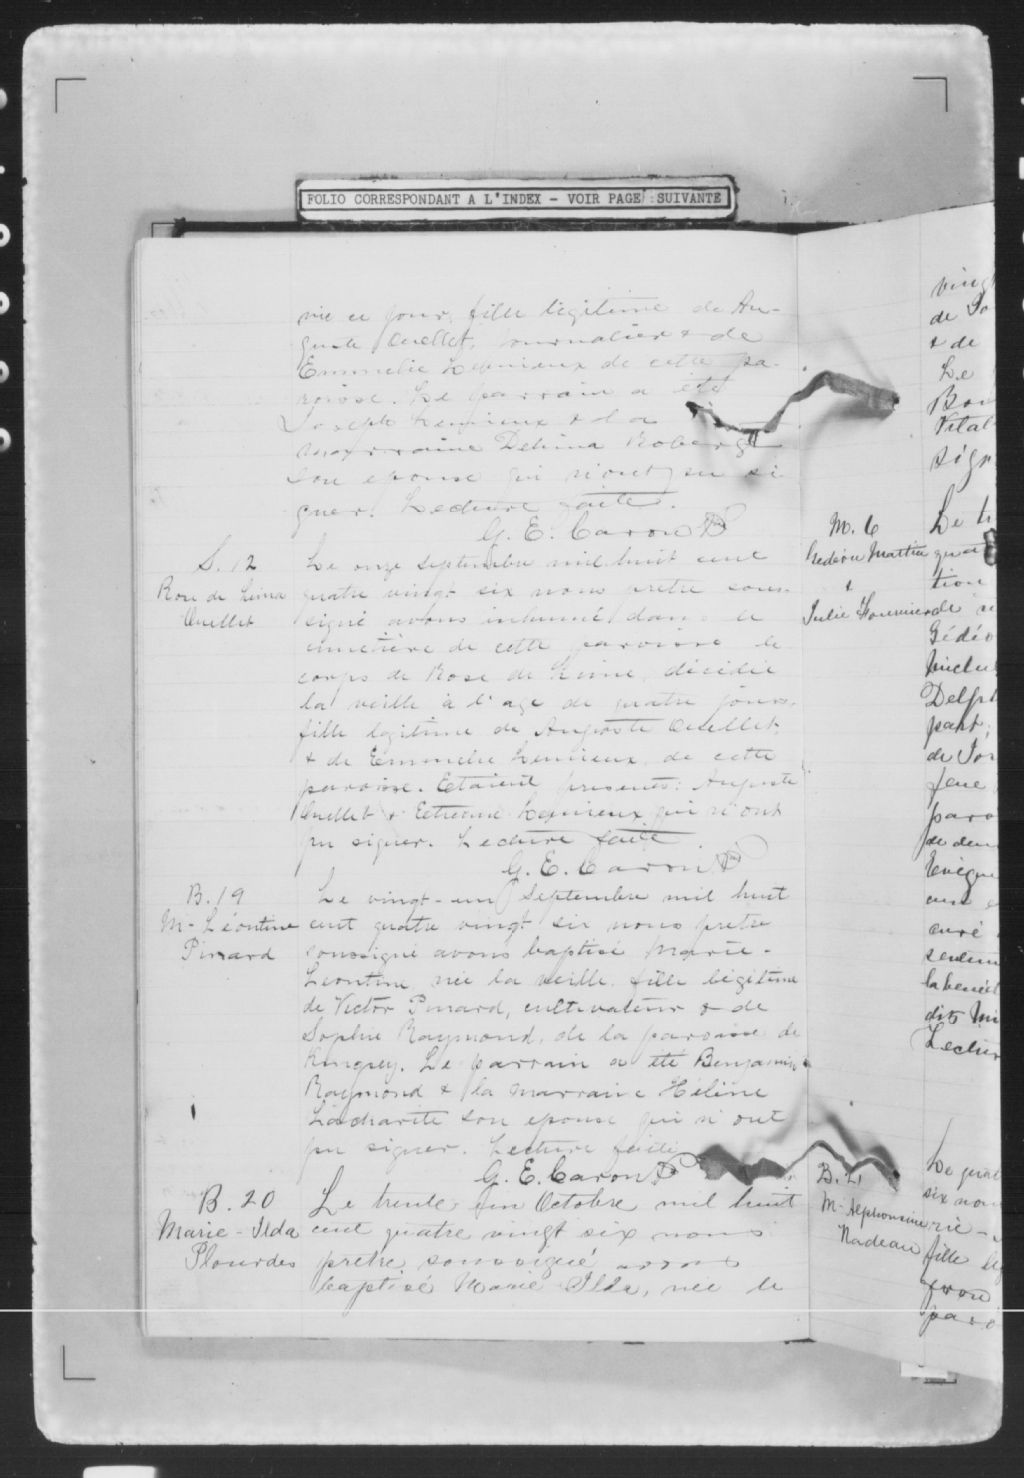 FOLIO CORRESPONDANT A L'INDEX - VOIR PAGE SUIVANTE
née ce jour, fille légitime de Au-
guste Ouellet, journalier & de
Emmelie Lemieux de cette pa-
roisse. Le parrain a été
Joseph Lemieux & la
marraine Delima Roberge
son epouse qui n'ont su si
gner. Lecture faite.
G. E. Caron Ptre
S. 12
Rose de Lima
Ouellet
Le onze Septembre mil huit cent
quatre vingt six nous pretre sous-
signé avons inhumé dans le
cimetière de cette paroisse le
corps de Rose de Lima, décédée
la veille à l'age de quatre jours,
fille légitime de Auguste Ouellet
& de Emmelie Lemieux, de cette
paroisse. Etaient presents: Auguste
Ouellet & Lemieux qui n'ont
pu signer. Lecture faite.
G. E. Caron Ptre
B. 19
M- Léontine
Pinard
Le vingt-un Septembre mil huit
cent quatre vingt six nous pretre
soussigné avons baptisé Marie-
Leontine née la veille, fille légitime
de Victor Pinard, cultivateur & de
Sophie Raymond, de la paroisse de
Kingsey. Le parrain a été Benjamin
Raymond & la marraine Hélène
Lacharité son epouse qui n'ont
pu signer. Lecture faite
G. E. Caron Ptre
B. 20
Marie-Ilda
Plourdes
Le trente-un Octobre mil huit
cent quatre vingt six nous
pretre soussigné avons
baptisé Marie Ilda, née le
M. 6
Gédéon Martin
&
Julie Fournier
B. 21
M- Alphonsine
Nadeau
ving
de Jo
& de
Le
Bou
Vital
sign
Le tr
quat
tion
de
Gédéo
Delph
part,
de Jos
paro
de deu
curé
la bénéd
dits
Lectur
Le quat
six nou
rie-
fille lé
paro